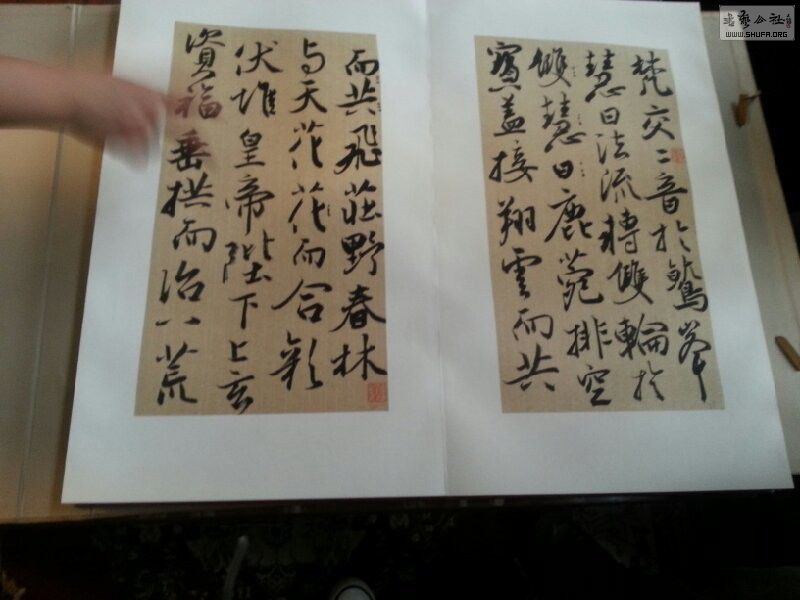 梵交二音於鷲峯
慧日法流轉雙輪於
雙慧日鹿菀排空
寶蓋接翔雲而共
而共飛莊野春林
与天花花而合彩
伏惟皇帝陛下上玄
資福垂拱而治八荒
书艺公社
WWW.SHUFA.ORG